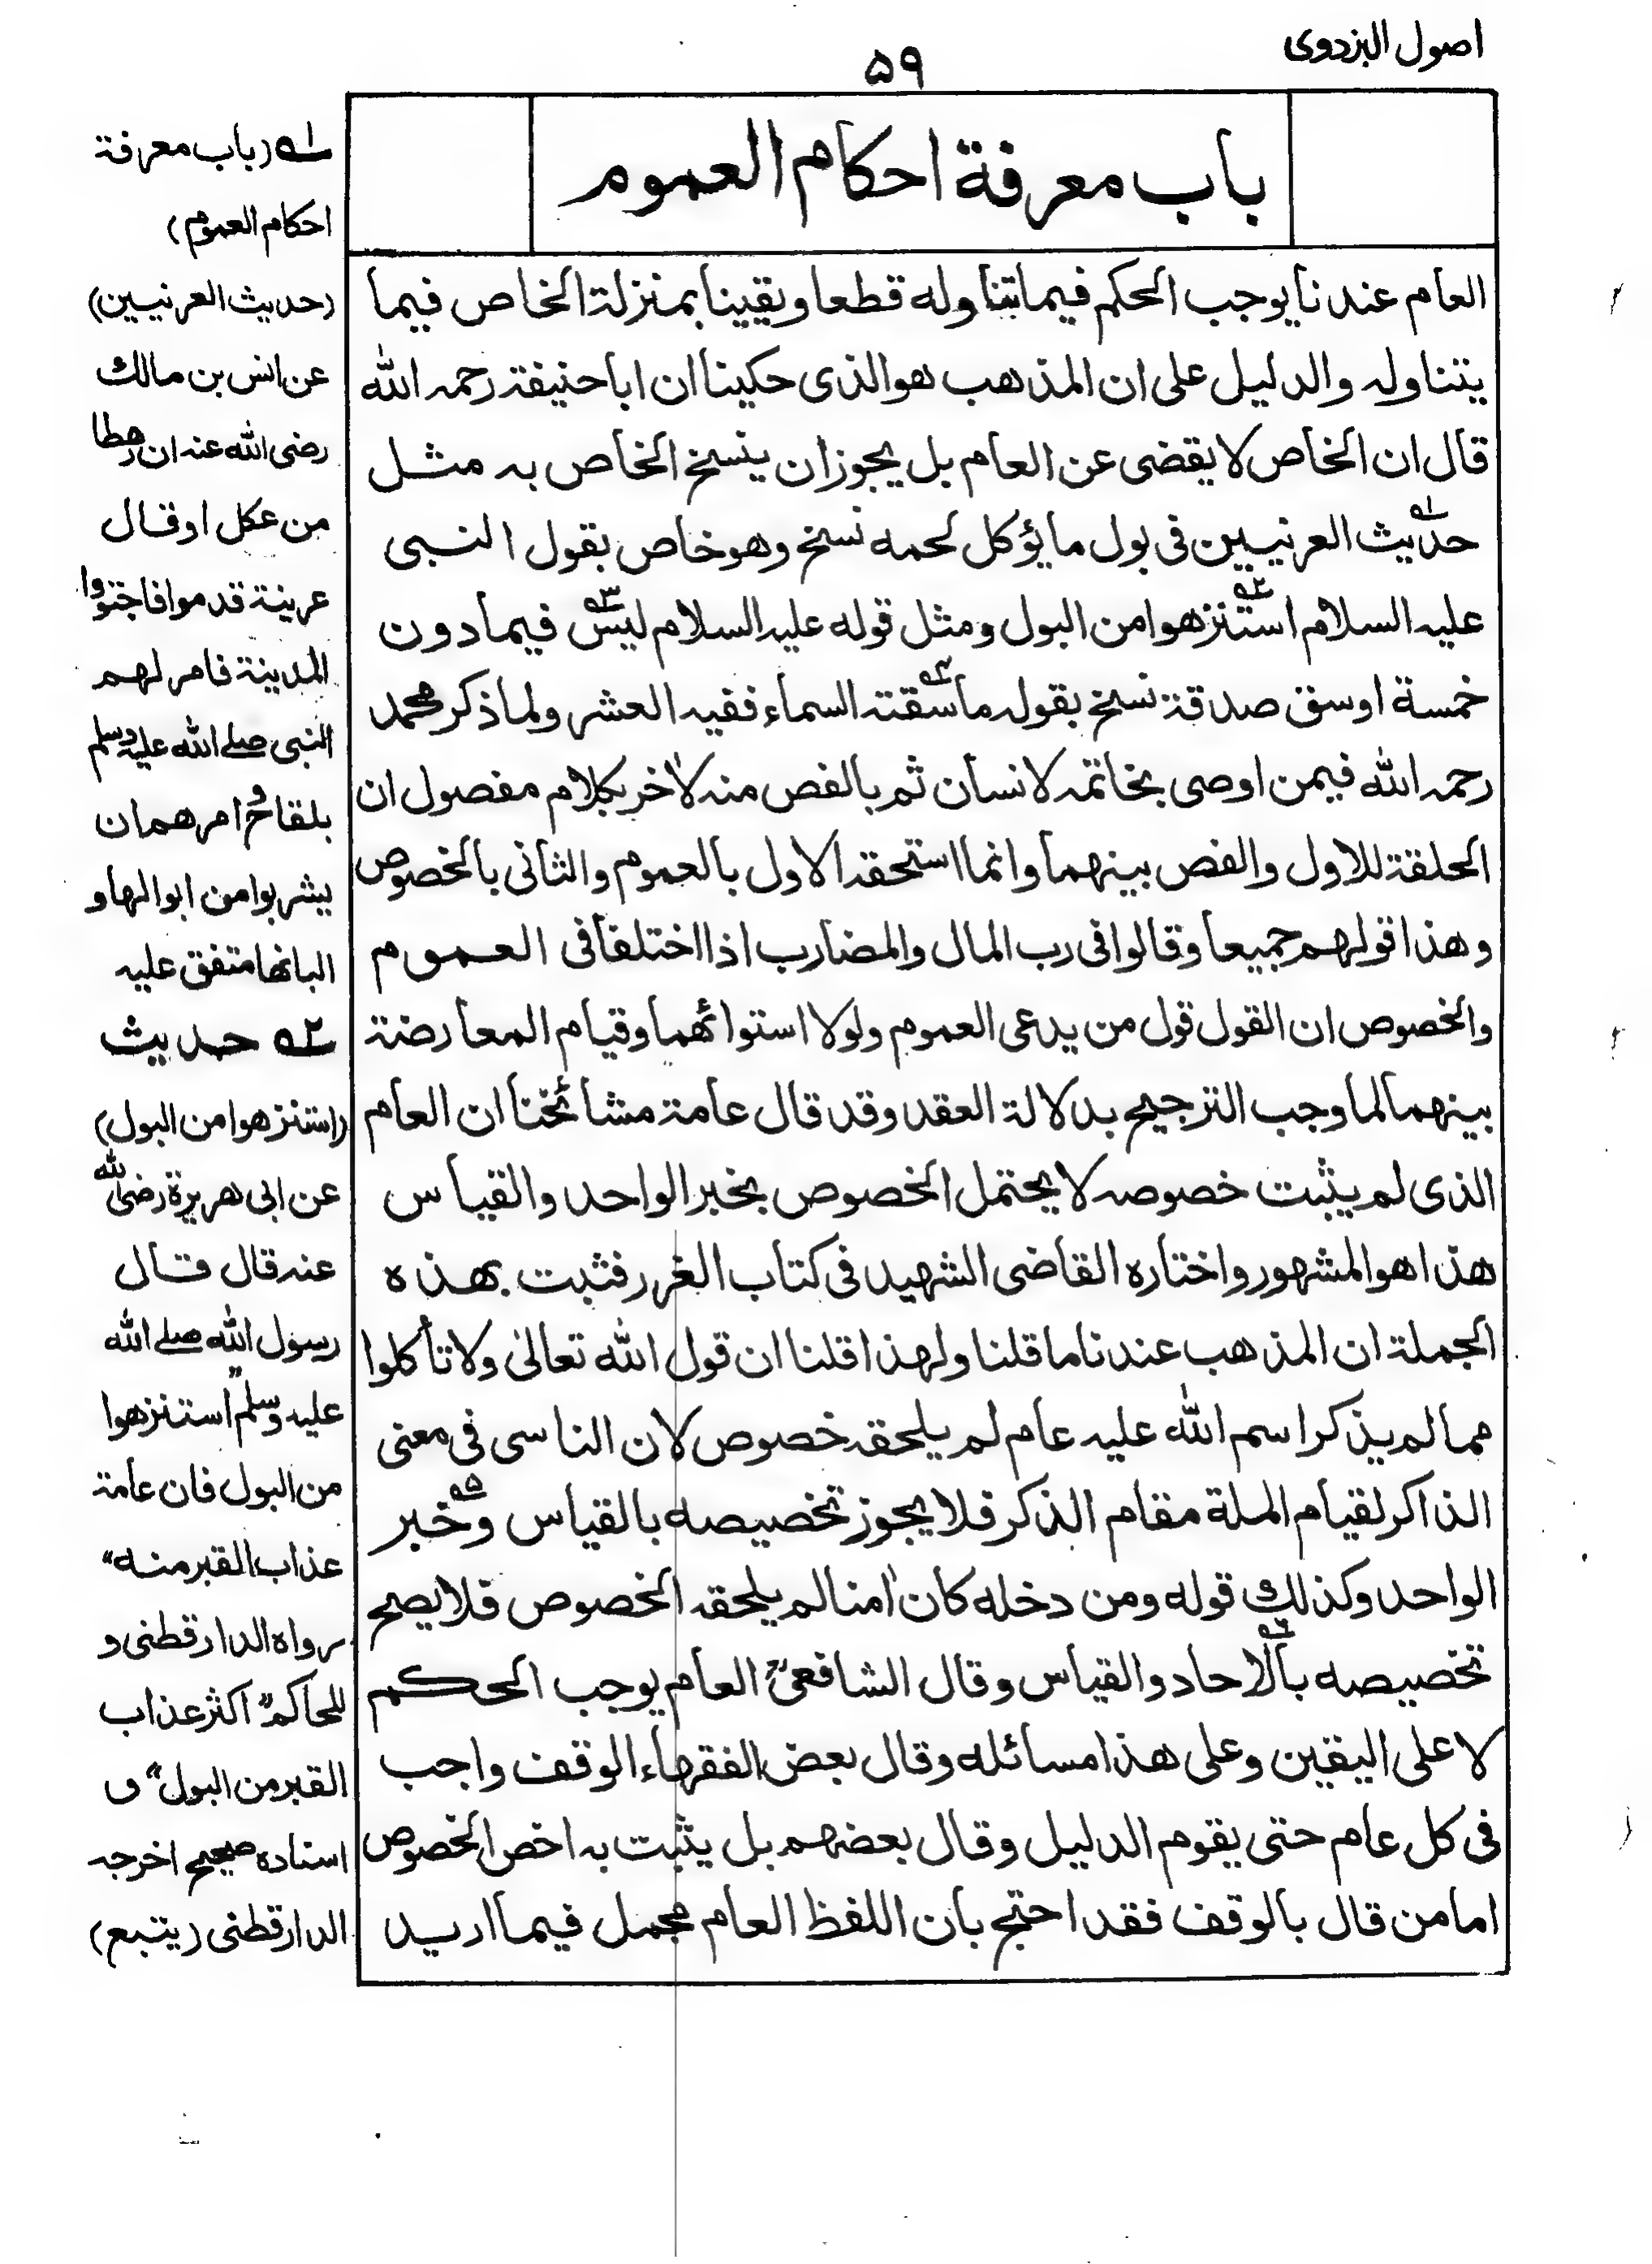 اصول البزدوی
۵۹
باب معرفة احكام العموم
العام عندنا يوجب الحكم فيما تناوله قطعا ويقينا بمنزلة الخاص فيما
يتناوله والدليل على ان المذهب هو الذى حكينا ان ابا حنيفة رحمه الله
قال ان الخاص لا يقضى عن العام بل يجوز ان ينسخ الخاص به مثل
حديث۱ العرنيين فى بول ما يؤكل لحمه نسخ وهو خاص بقول النبى
عليه السلام استنزهوا۲ من البول ومثل قوله عليه السلام ليس۳ فيما دون
خمسة اوسق صدقة نسخ بقوله ما سقته۴ السماء ففيه العشر ولما ذكر محمد
رحمه الله فيمن اوصى بخاتمه لانسان ثم بالفص منه لاٰخر بكلام مفصول ان
الحلقة للاول والفص بينهما وانما استحقه الاول بالعموم والثانى بالخصوص
وهذا قولهم جميعا وقالوا فى رب المال والمضارب اذا اختلفا فى العموم
والخصوص ان القول قول من يدعى العموم ولولا استوائهما وقيام المعارضة
بينهما لما وجب الترجيح بدلالة العقد وقد قال عامة مشائخنا ان العام
الذى لم يثبت خصوصه لا يحتمل الخصوص بخبر الواحد والقياس
هذا هو المشهور واختاره القاضى الشهيد فى كتاب الغرر فثبت بهذه
الجملة ان المذهب عندنا ما قلنا ولهذا قلنا ان قول الله تعالىٰ ولا تأكلوا
مما لم يذكر اسم الله عليه عام لم يلحقه خصوص لان الناسى فى معنى
الذاكر لقيام الملة مقام الذكر فلا يجوز تخصيصه بالقياس وخبر۵
الواحد وكذلك قوله ومن دخله كان اٰمنا لم يلحقه الخصوص فلا يصح
تخصيصه بالاٰحاد۶ والقياس وقال الشافعىؒ العام يوجب الحكم
لا على اليقين وعلى هذا مسائله وقال بعض الفقهاء الوقف واجب
فى كل عام حتى يقوم الدليل وقال بعضهم بل يثبت به اخص الخصوص
اما من قال بالوقف فقد احتج بان اللفظ العام مجمل فيما اريد
۱ (باب معرفة
احكام العموم)
(حديث العرنيين)
عن انس بن مالك
رضى الله عنه ان رهطا
من عكل او قال
عرينة قدموا فاجتووا
المدينة فامر لهم
النبى صلے الله عليه وسلم
بلقاح وامرهم ان
يشربوا من ابوالها و
البانها متفق عليه
۲ حديث
(استنزهوا من البول)
عن ابى هريرة رضى الله
عنه قال قال
رسول الله صلے الله
عليه وسلم "استنزهوا
من البول فان عامة
عذاب القبر منه"
رواه الدارقطنى و
للحاكم "اكثر عذاب
القبر من البول" و
اسناده صحيح اخرجه
الدارقطنى (يتبع)